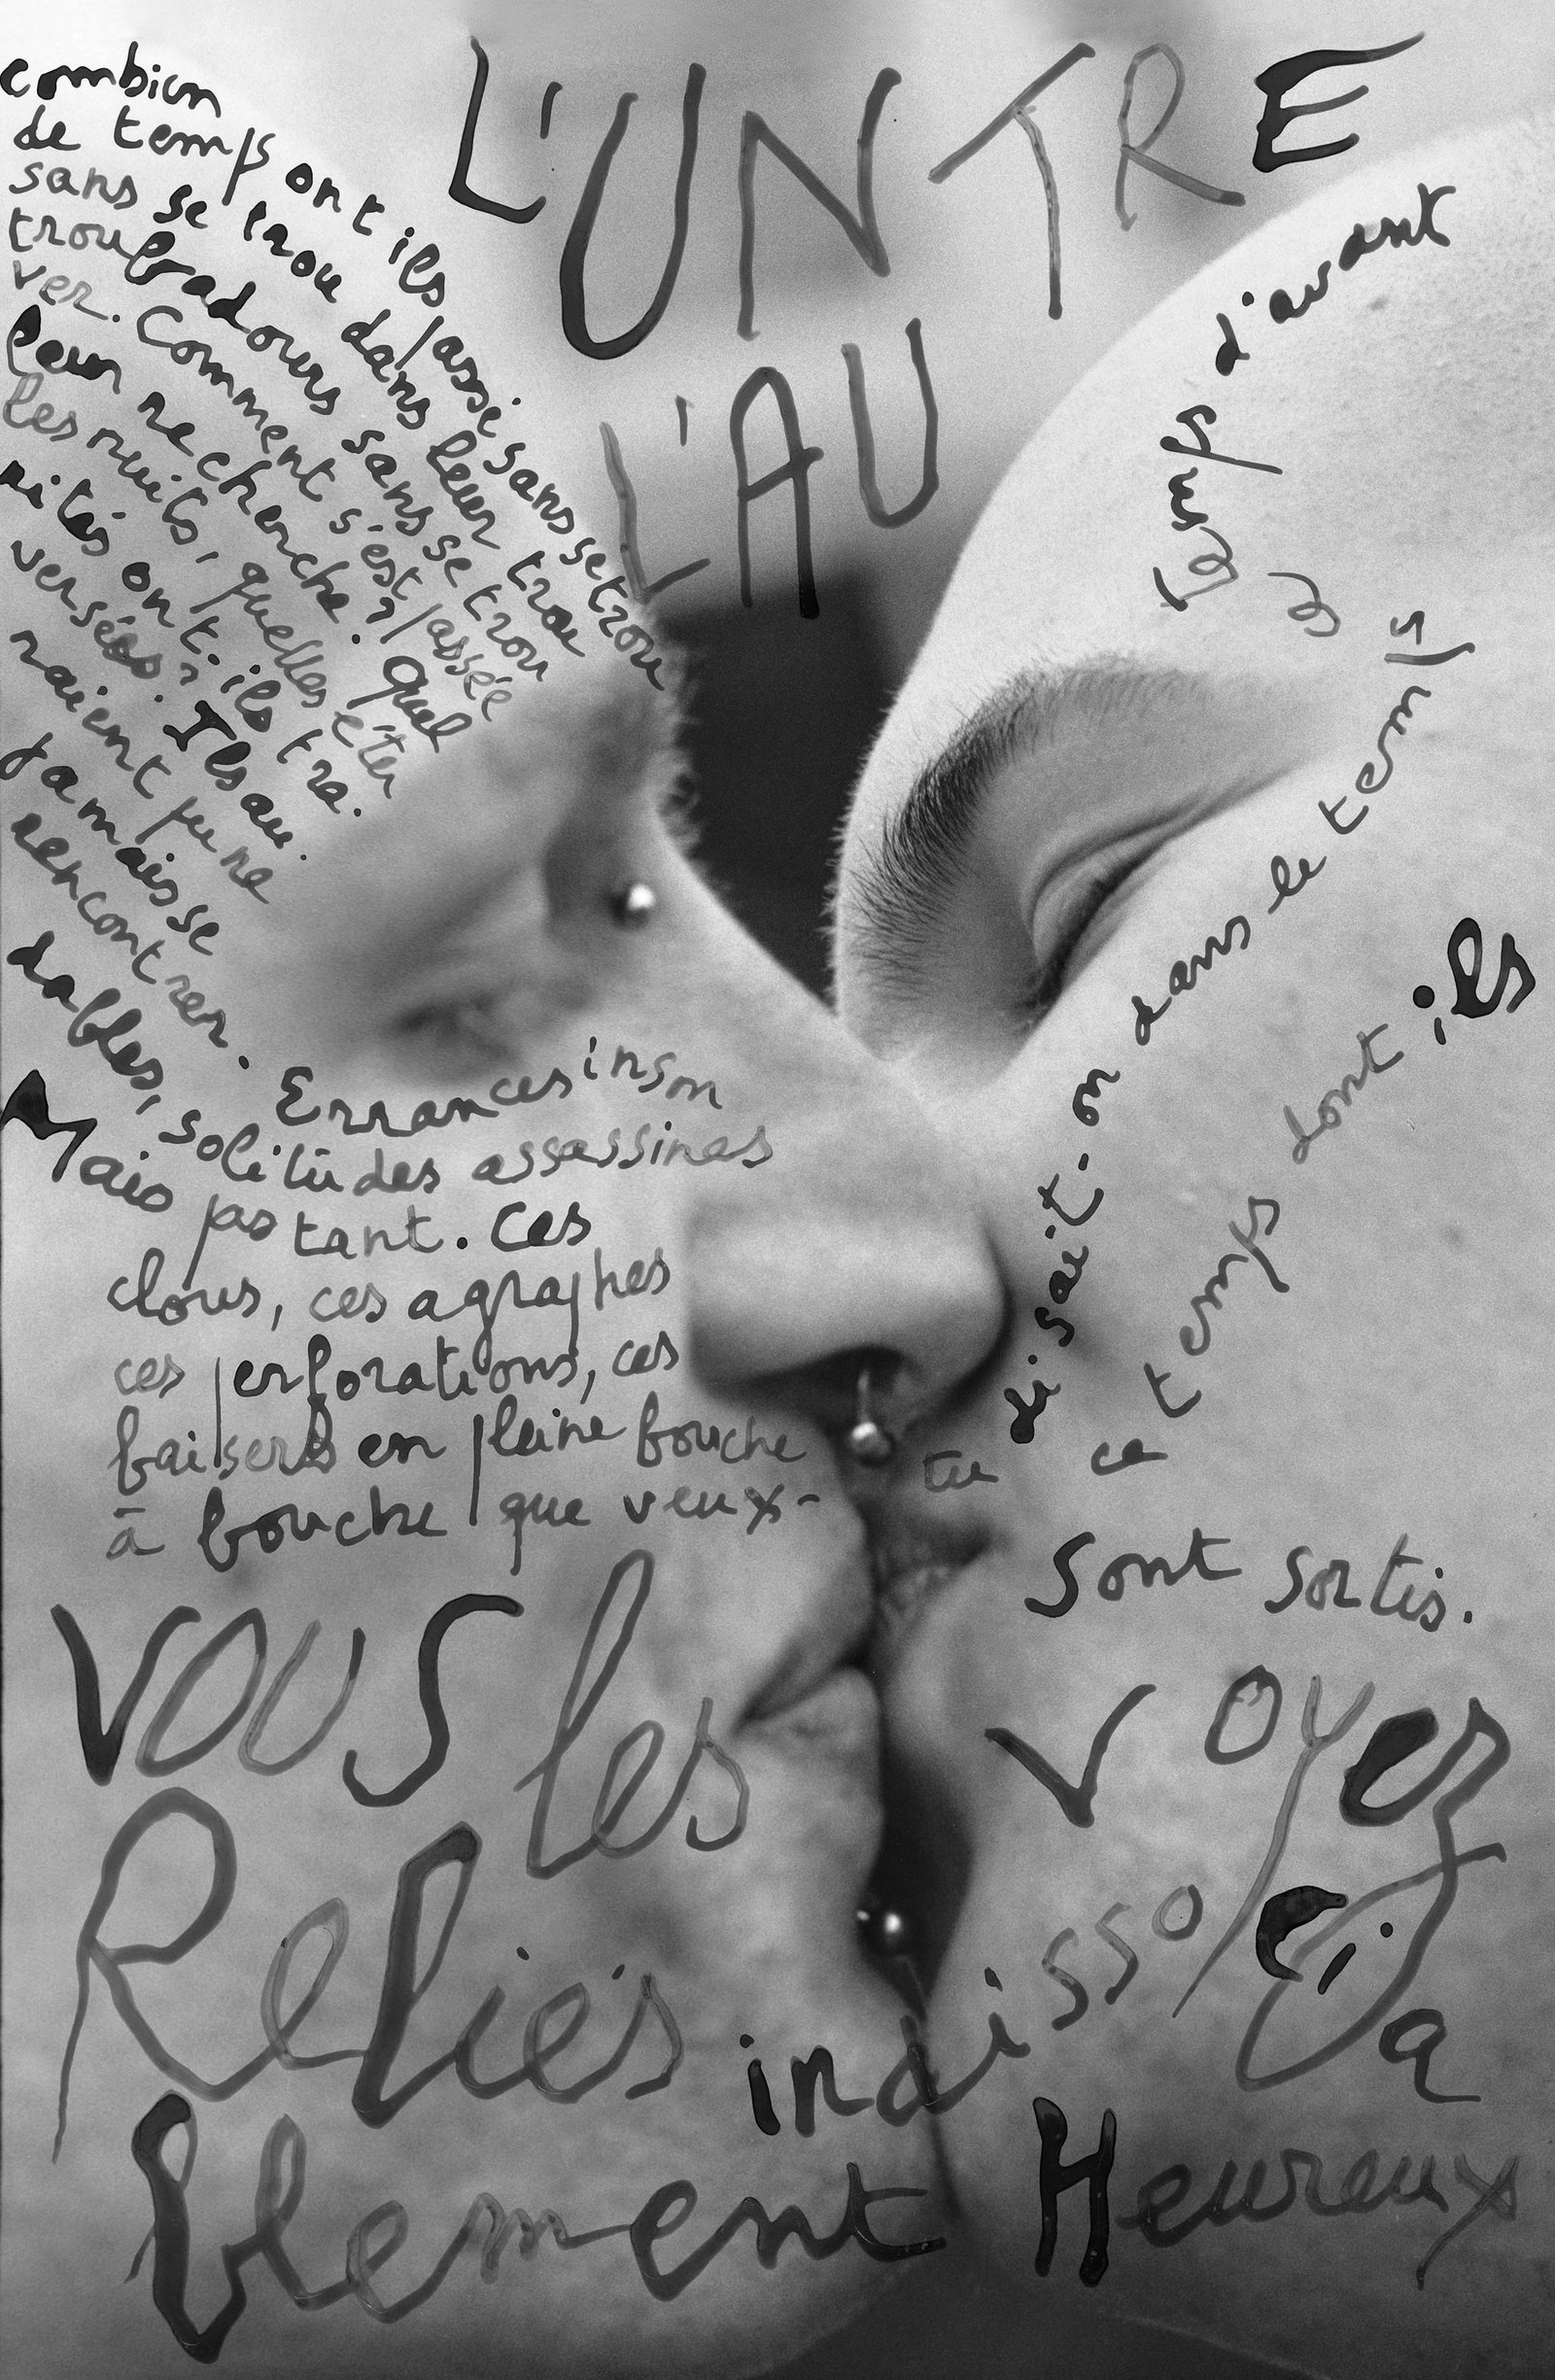 L'UNTRE
L'AU
combien
de temps ont ils passé sans se trou
sans se trou dans leur trou
troubadours sans se trou
ver. Comment s'est passée
leur recherche? Quel
les nuits, quelles éter
nités ont. ils tra.
versées? Ils au.
raient pu ne
jamais se
rencontrer. Errances inson
dables, solitudes assassines
Mais pas tant. Ces
clous, ces agraphes
ces perforations, ces
baisers en pleine bouche
à bouche que veux-
tu disait-on dans le temps
le temps d'avant
ce temps dont ils
sont sortis.
vous les voyez
Reliés indisso
blement Heureux